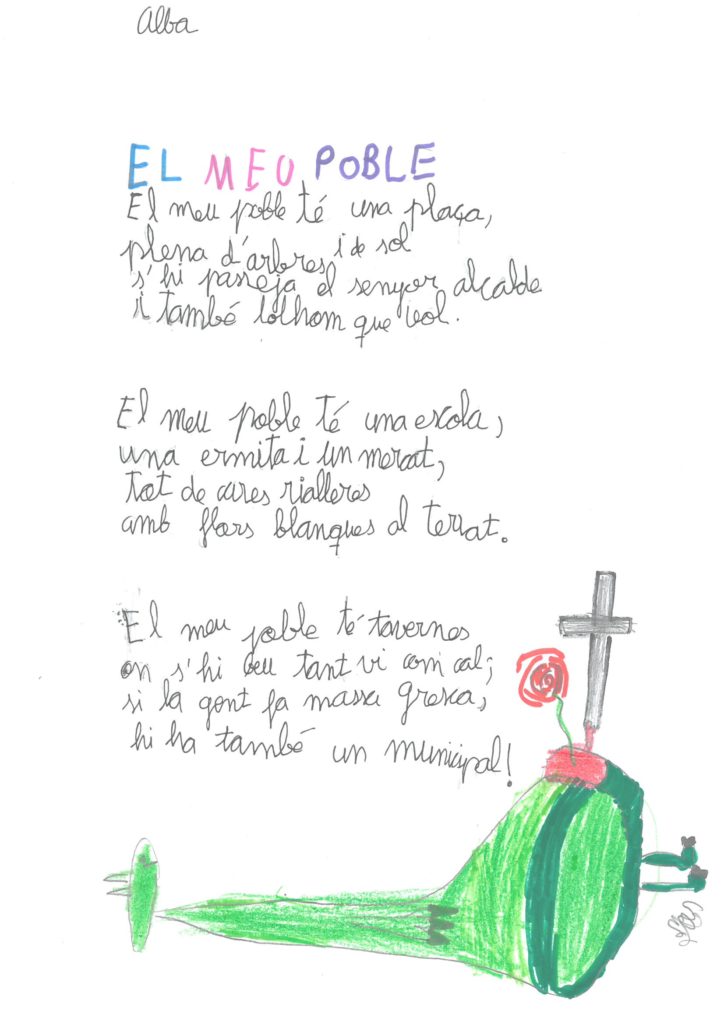 Alba
EL MEU POBLE
El meu poble té una plaça,
plena d'arbres i de sol
s'hi passeja el senyor alcalde
i també tolhom que vol.
El meu poble té una escola,
una ermita i un mercat,
tot de cares rialleres
amb flors blanques al terrat.
El meu poble té tavernes
on s'hi beu tant vi com cal;
si la gent fa massa gresca,
hi ha també un municipal!